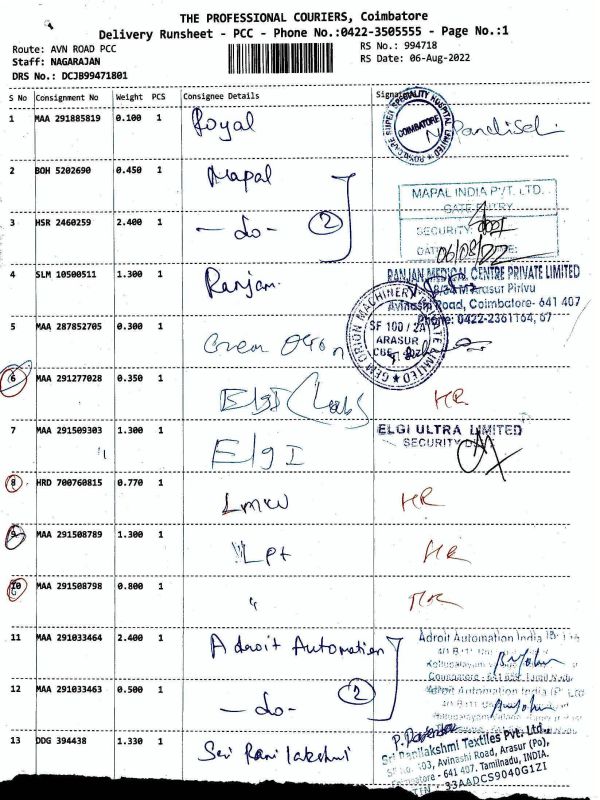 THE PROFESSIONAL COURIERS, Coimbatore
Delivery Runsheet - PCC - Phone No.:0422-3505555 - Page No.:1
Route: AVN ROAD PCC
RS No.: 994718
Staff: NAGARAJAN
RS Date: 06-Aug-2022
DRS No.: DCJB99471801
S No Consignment No Weight PCS Consignee Details Signature
1 MAA 291885819 0.100 1 Royal
SUPER SPECIALITY HOSPITAL
COIMBATORE
2 BOH 5202690 0.450 1 Mapal
MAPAL INDIA PVT. LTD.
GATE ENTRY
SECURITY:
06/08/22
3 HSR 2460259 2.400 1 - do - 2
4 SLM 10500511 1.300 1 Ranjan
RANJAN MEDICAL CENTRE PRIVATE LIMITED
Arasur Pirivu
Avinashi Road, Coimbatore- 641 407
Phone: 0422-2361164, 67
5 MAA 287852705 0.300 1
GEM ORION MACHINERY PRIVATE LIMITED
SF 100 / 2A
ARASUR
6 MAA 291277028 0.350 1 Elgi HR
7 MAA 291509303 1.300 1 Elgi
ELGI ULTRA LIMITED
SECURITY
8 HRD 700760815 0.770 1 Lmw HR
9 MAA 291508789 1.300 1 HR
10 MAA 291508798 0.800 1 " HR
11 MAA 291033464 2.400 1 Adroit Automation
Adroit Automation India
12 MAA 291033463 0.500 1 - do - 2
Adroit Automation India (P) Ltd
13 DDG 394438 1.330 1 Sri Ranilakshmi
Sri Ranilakshmi Textiles Pvt. Ltd.,
SF No. 503, Avinashi Road, Arasur (Po),
Coimbatore - 641 407. Tamilnadu, INDIA.
33AADCS9040G1ZI